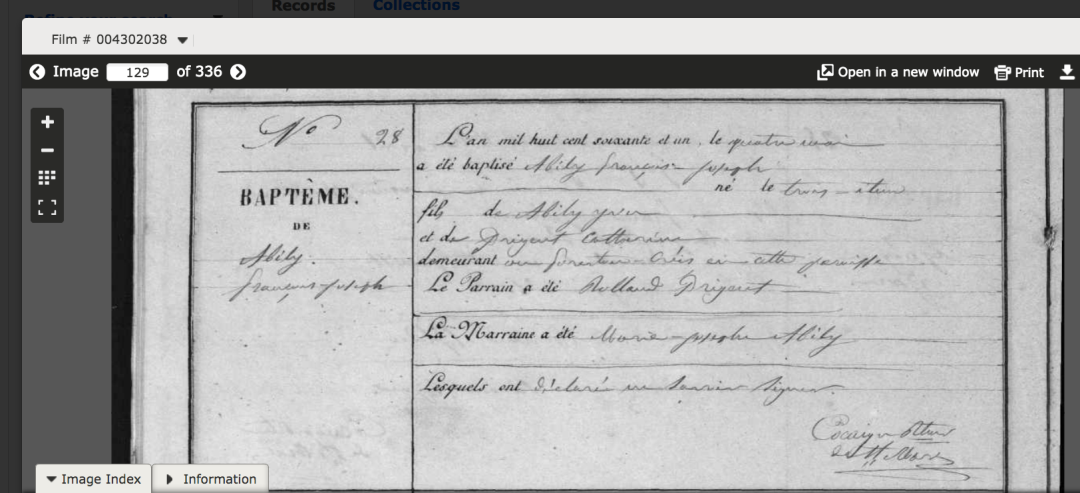 Records Collections
Film # 004302038
Image 129 of 336
Open in a new window Print
No 28
BAPTÊME.
DE
Abily
françois joseph
L'an mil huit cent soixante et un, le quatre mai
a été baptisé Abily françois joseph
né le trois
fils de Abily yves
et de Prigent Catherine
demeurant en cette paroisse
Le Parrain a été Rolland Prigent
La Marraine a été Marie josephe Abily
Lesquels ont déclaré ne savoir signer
Image Index Information